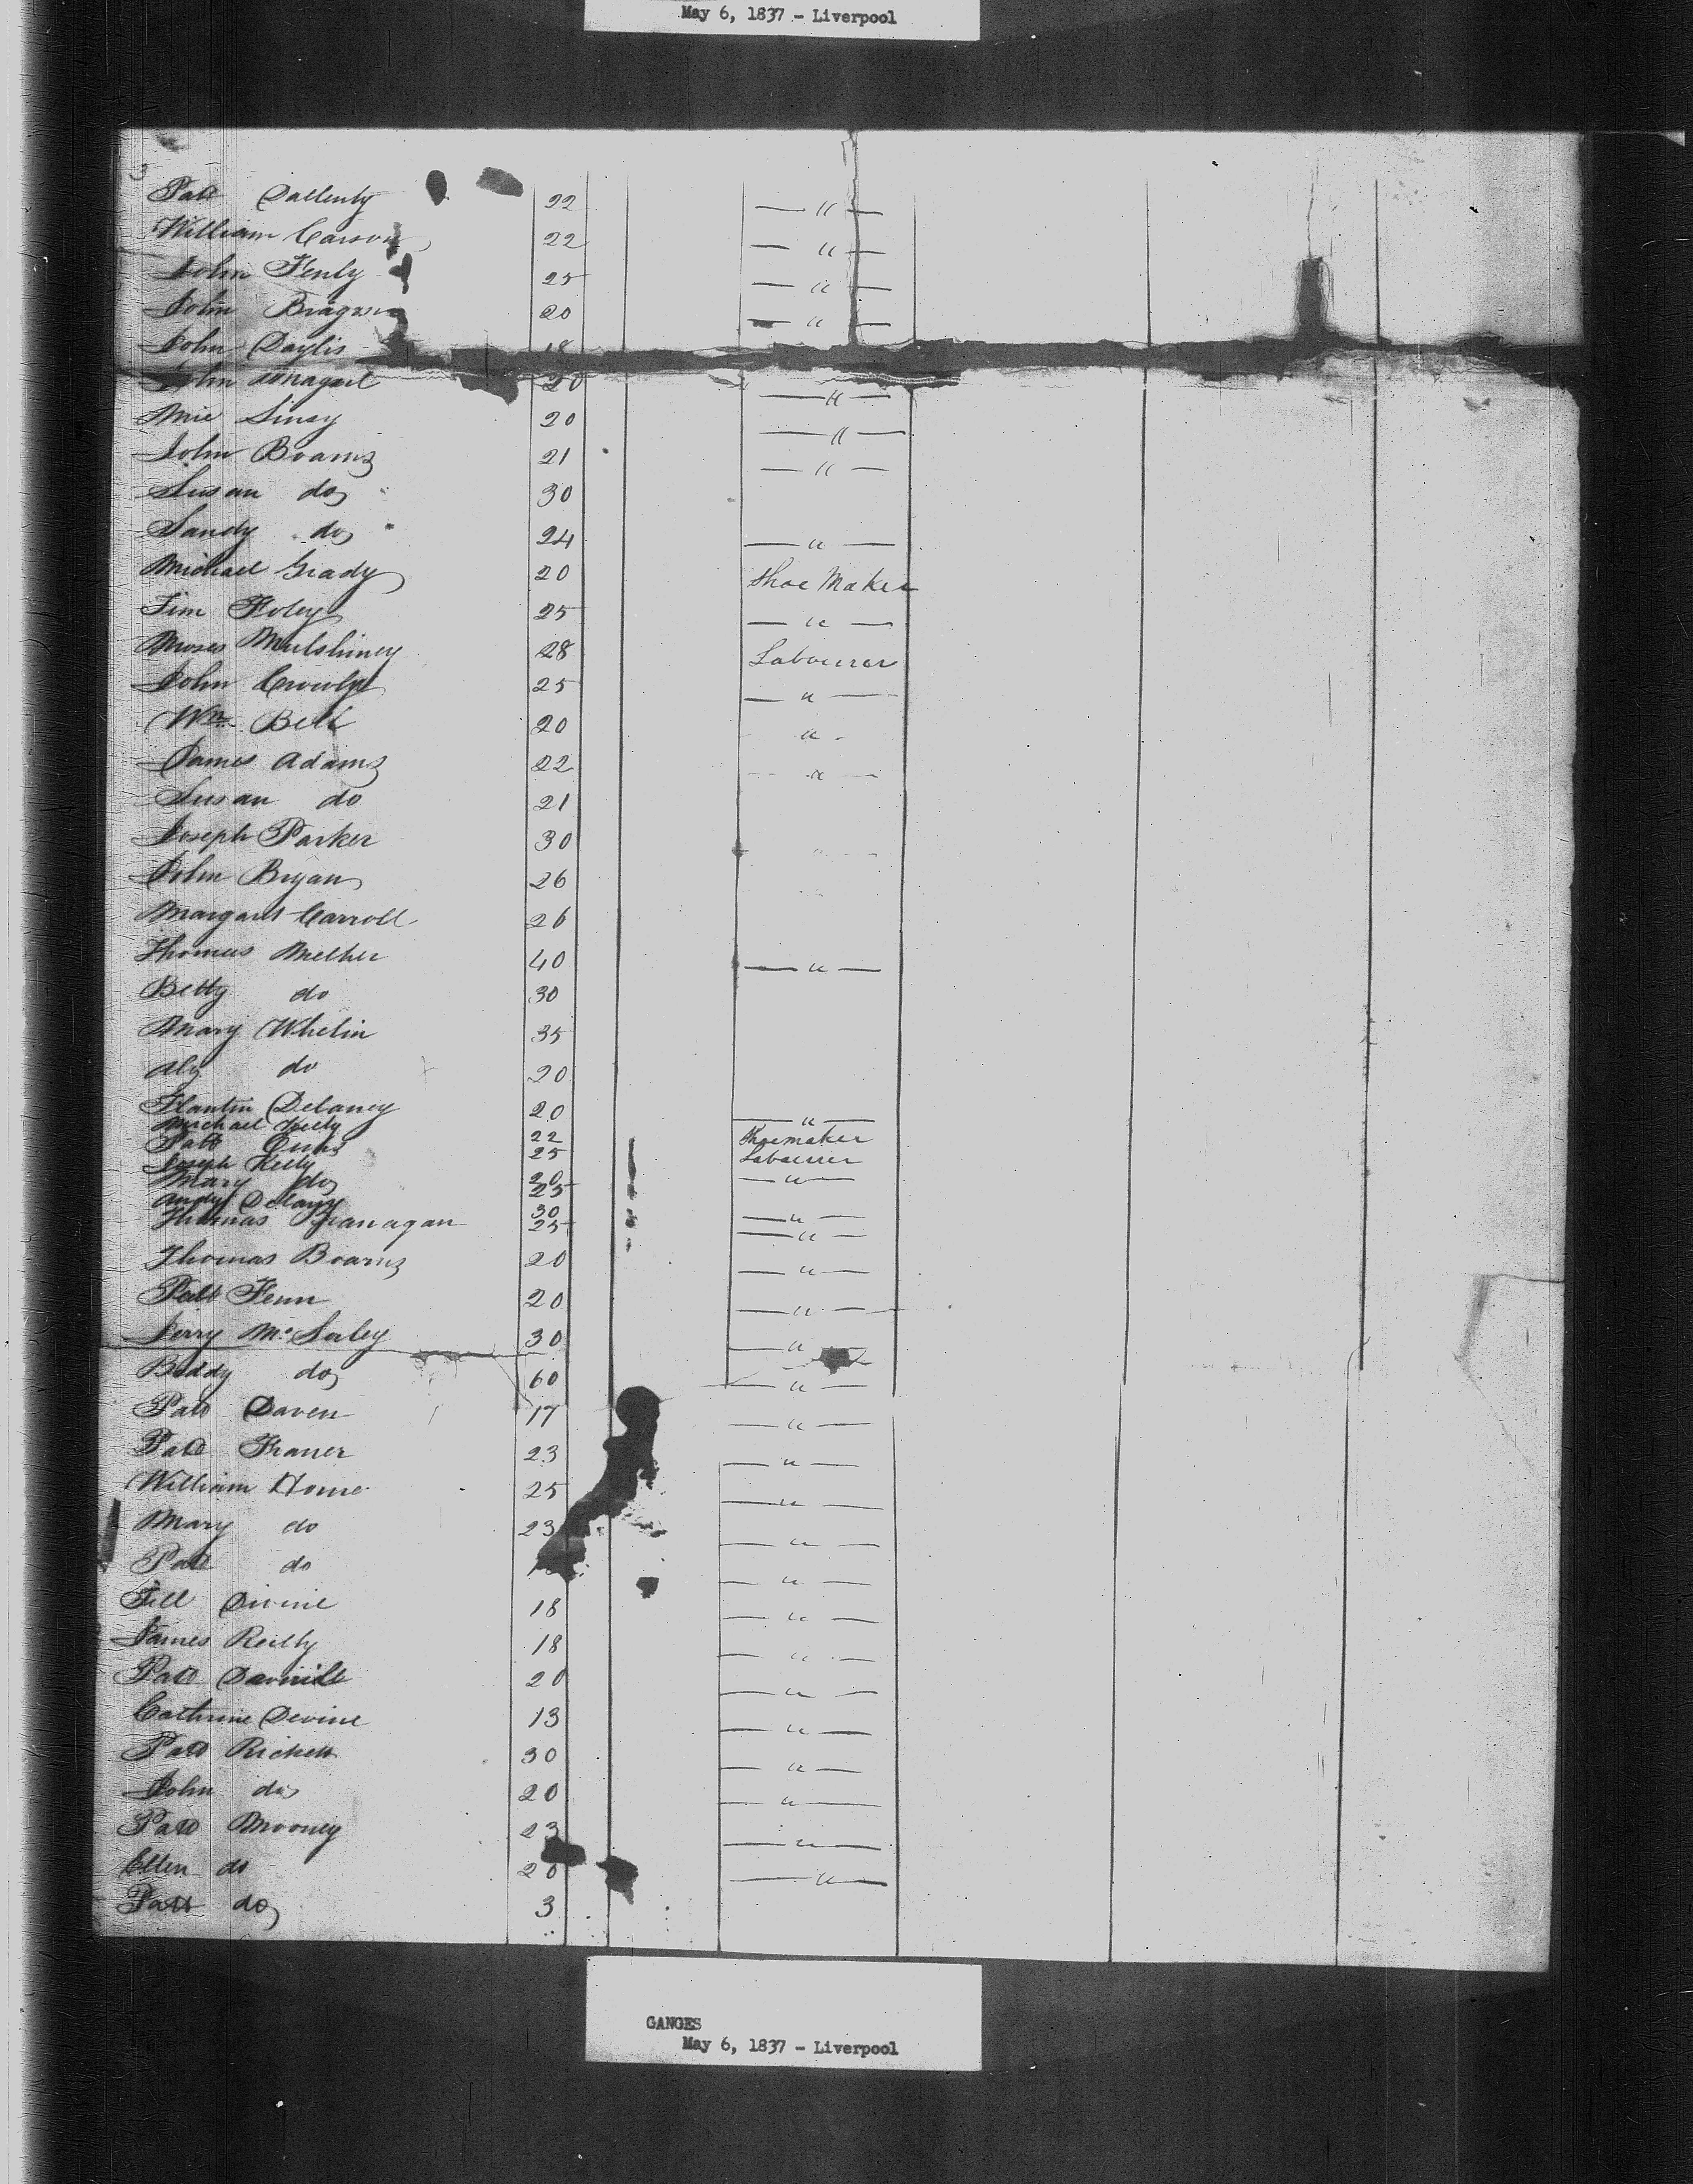 May 6, 1837 - Liverpool
3
Patt Dallenty 22 — " —
William Carson 22 — " —
John Fenly 25 — " —
John 20 — " —
John Daylis 18
John 20 — " —
Mic 20 — " —
John Boams 21 — " —
Susan do 30
Sandy do 24 — " —
Michael Grady 20 Shoe Maker
Tim Foley 25 — " —
Moses Mulshiney 28 Labourer
John 25 — " —
Wm Bell 20 " -
James Adams 22 — " —
Susan do 21
Joseph Parker 30 " —
John Bryan 26
Margaret Carroll 26
Thomas Melher 40 — " —
Betty do 30
Mary Whelin 35
Aly do 20
Flantin Delaney 20 — " —
Michael Kelly 22 Shoemaker
Patt 25 Labourer
Joseph Kelly 20 — " —
Mary do 25
Andy Delany 30 — " —
Thomas Flanagan 25 — " —
Thomas Boams 20 — " —
Patt Fenn 20 — " —
Jerry Mc Sorley 30 — " —
Biddy do 60 — " —
Patt Daven 17 — " —
Patt 23 — " —
William Horne 25 — " —
Mary do 23 — " —
Patt do — " —
Devine 18 — " —
James Reilly 18 — " —
Patt 20 — " —
Cathrine Devine 13 — " —
Patt Rickett 30 — " —
John do 20 — " —
Patt Mooney 23 — " —
Ellen do 20 — " —
Patt do 3
GANGES
May 6, 1837 - Liverpool